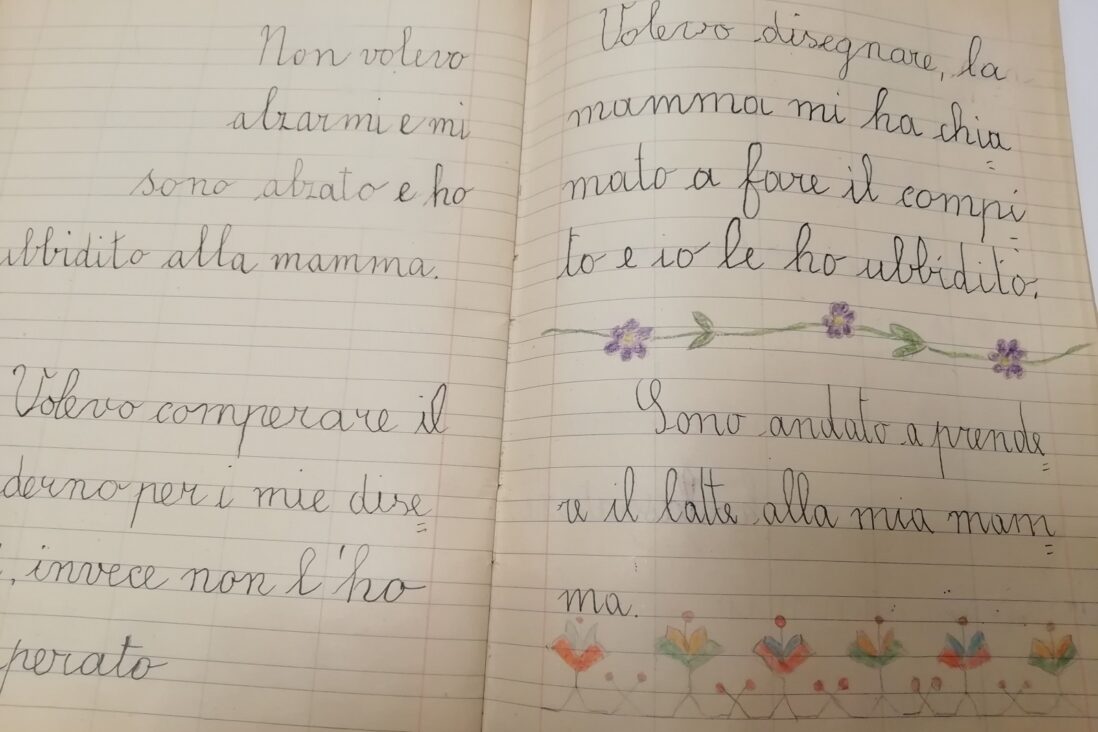 Non volevo
alzarmi e mi
sono alzato e ho
ubbidito alla mamma.
Volevo comperare il
derno per i mie dise
, invece non l'ho
perato
Volevo disegnare, la
mamma mi ha chia
mato a fare il compi
to e io le ho ubbidito.
Sono andato a prende
re il latte alla mia mam
ma.